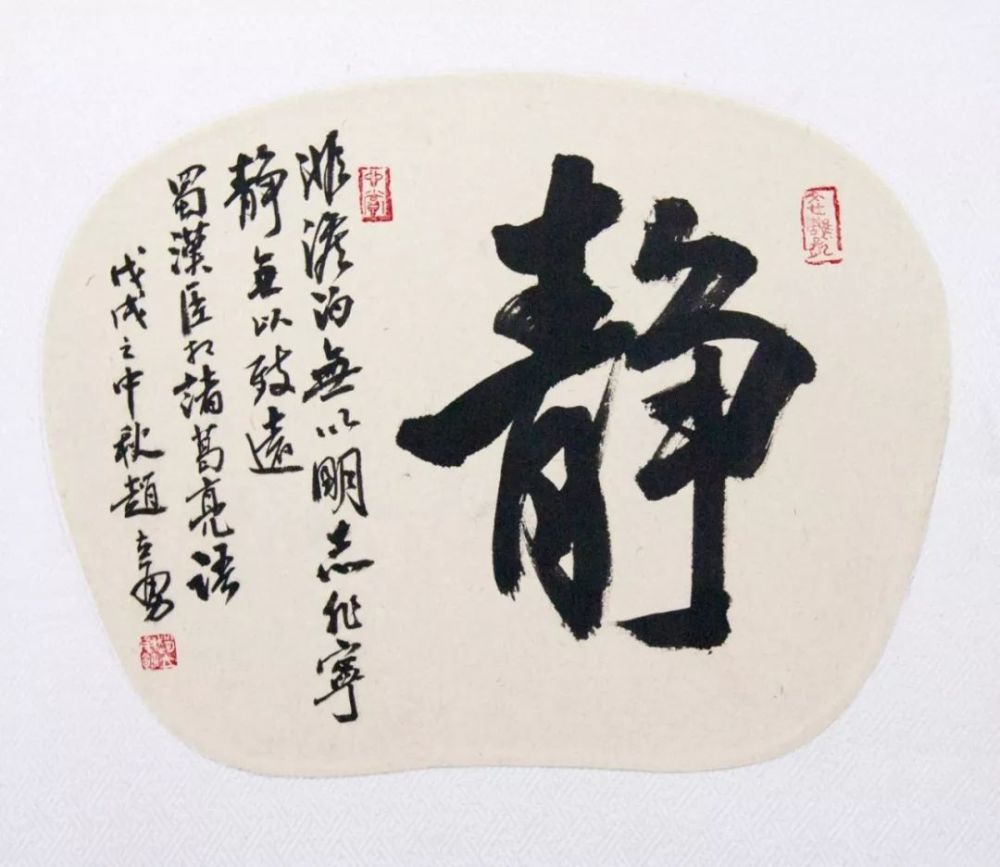 静
非澹泊無以明志非寧
静無以致遠
蜀漢臣相諸葛亮語
戊戌之中秋趙勇